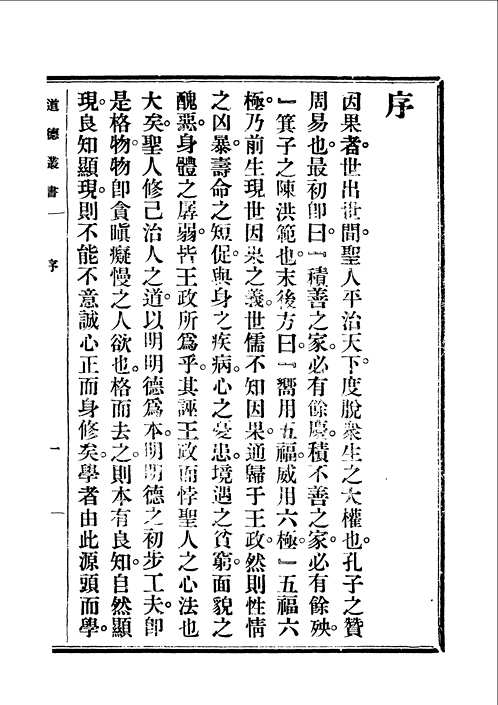 序
因果者。世出世間聖人平治天下。度脫衆生之大權也。孔子之贊
周易也。最初卽曰。『積善之家。必有餘慶。積不善之家。必有餘殃。
』箕子之陳洪範也。末後方曰。『嚮用五福。威用六極。』五福六
極。乃前生現世因果之義。世儒不知因果。通歸于王政。然則性情
之凶暴。壽命之短促。與身之疾病。心之憂患。境遇之貧窮。面貌之
醜惡。身體之孱弱。皆王政所爲乎。其誣王政而悖聖人之心法也
大矣。聖人修己治人之道。以明明德爲本。明明德之初步工夫。卽
是格物。物卽貪瞋癡慢之人欲也。格而去之。則本有良知。自然顯
現。良知顯現。則不能不意誠心正而身修矣。學者由此源頭而學。
道德叢書 序 一